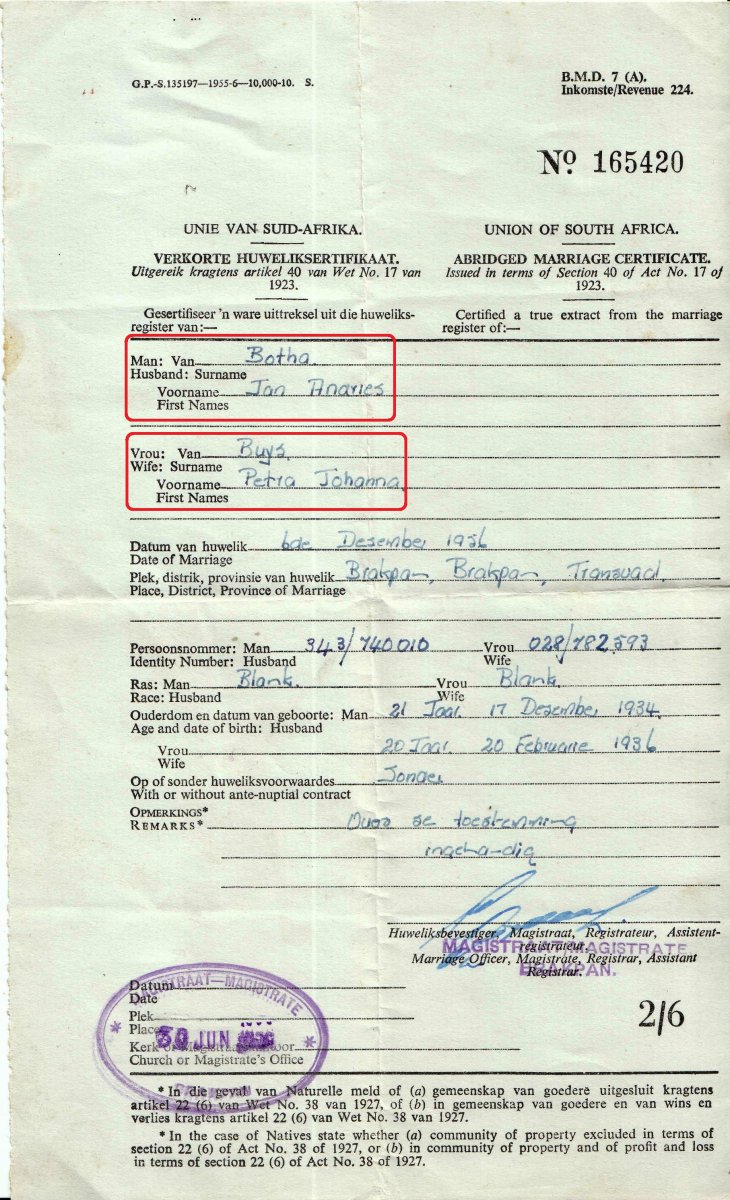 G.P.-S.135197—1955-6—10,000-10. S.
B.M.D. 7 (A).
Inkomste/Revenue 224.
No. 165420
UNIE VAN SUID-AFRIKA.
VERKORTE HUWELIKSERTIFIKAAT.
Uitgereik kragtens artikel 40 van Wet No. 17 van
1923.
Gesertifiseer 'n ware uittreksel uit die huweliks-
register van:—
UNION OF SOUTH AFRICA.
ABRIDGED MARRIAGE CERTIFICATE.
Issued in terms of Section 40 of Act No. 17 of
1923.
Certified a true extract from the marriage
register of:—
Man: Van Botha
Husband: Surname
Voorname Jan Andries
First Names
Vrou: Van Buys
Wife: Surname
Voorname Petra Johanna
First Names
Datum van huwelik 6de Desember 1956
Date of Marriage
Plek, distrik, provinsie van huwelik Brakpan, Brakpan, Transvaal.
Place, District, Province of Marriage
Persoonsnommer: Man 343/740010 Vrou 028/782593
Identity Number: Husband Wife
Ras: Man Blank. Vrou Blank.
Race: Husband Wife
Ouderdom en datum van geboorte: Man 21 Jaar. 17 Desember 1934.
Age and date of birth: Husband
Vrou 20 Jaar. 20 Februarie 1936
Wife
Op of sonder huweliksvoorwaardes Sonder
With or without ante-nuptial contract
OPMERKINGS*
REMARKS* Ouers se toestemming
ingehandig
Huweliksbevestiger, Magistraat, Registrateur, Assistent-
registrateur.
MAGISTRAAT/MAGISTRATE
Marriage Officer, Magistrate, Registrar, Assistant
Registrar.
BRAKPAN.
MAGISTRAAT—MAGISTRATE
Datum
Date
Plek
Place
30 JUN 1956
Kerk of Magistraatskantoor
Church or Magistrate's Office
BRAKPAN
2/6
* In die geval van Naturelle meld of (a) gemeenskap van goedere uitgesluit kragtens
artikel 22 (6) van Wet No. 38 van 1927, of (b) in gemeenskap van goedere en van wins en
verlies kragtens artikel 22 (6) van Wet No. 38 van 1927.
* In the case of Natives state whether (a) community of property excluded in terms of
section 22 (6) of Act No. 38 of 1927, or (b) in community of property and of profit and loss
in terms of section 22 (6) of Act No. 38 of 1927.